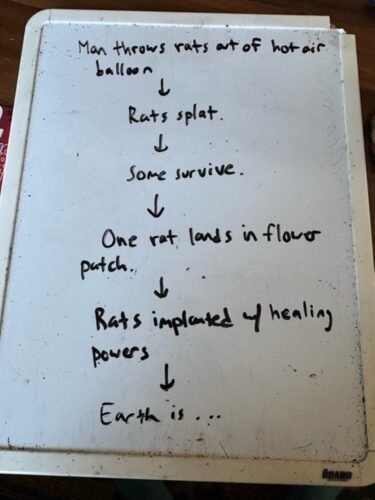 Man throws rats out of hot air
balloon
↓
Rats splat.
↓
Some survive.
↓
One rat lands in flower
patch.
↓
Rats implanted w/ healing
powers
↓
Earth is ...
BOARD